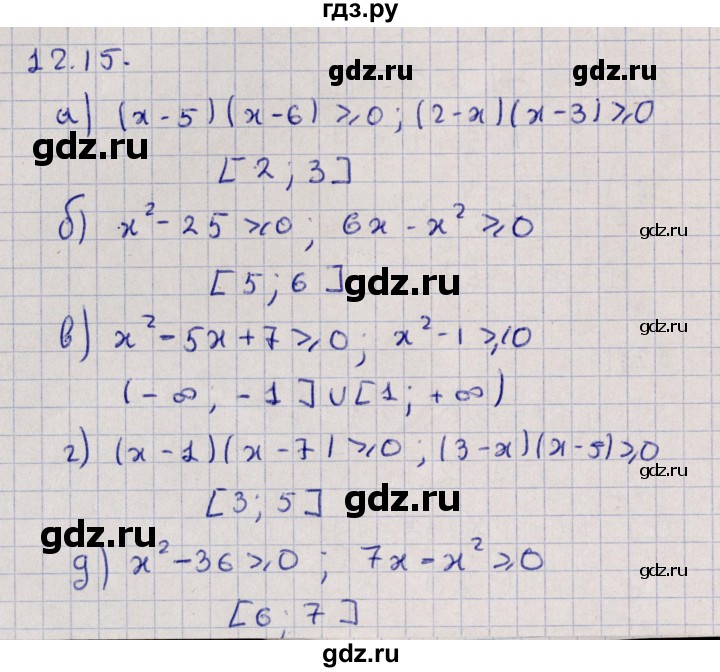 гдз.ру
12.15.
gdz.ru gdz.ru
а) (x-5)(x-6)⩾0; (2-x)(x-3)⩾0
gdz.ru
[2; 3]
б) x²-25⩾0; 6x-x²⩾0
gdz.ru
[5; 6]
gdz.ru
в) x²-5x+7⩾0; x²-1⩾0
gdz.ru
(-∞; -1]∪[1; +∞)
г) (x-1)(x-7)⩾0; (3-x)(x-5)⩾0
gdz.ru
[3; 5]
gdz.ru
gdz.ru
д) x²-36⩾0; 7x-x²⩾0
gdz.ru
[6; 7]
gdz.ru